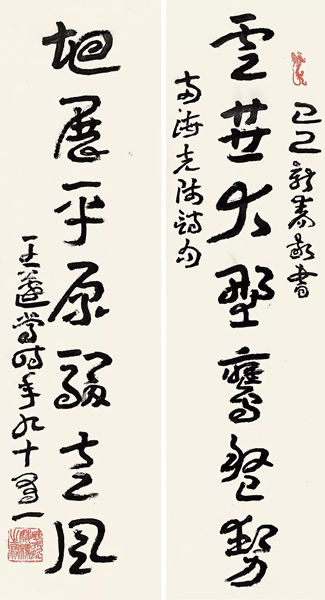 己巳新春敬書
雲垂大野鷹盤勢
南海先師詩句
地展平原駿走風
王蘧常時年九十一